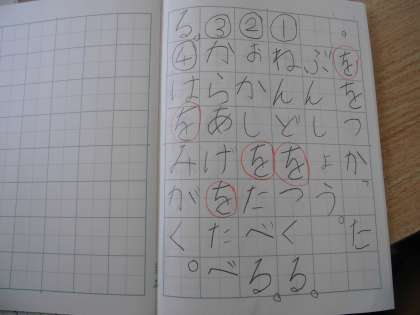 。ををつかった
ぶんしょう。
①ねんどをつくる。
②おかしをたべる。
③からあげをたべ
る。④はをみがく。